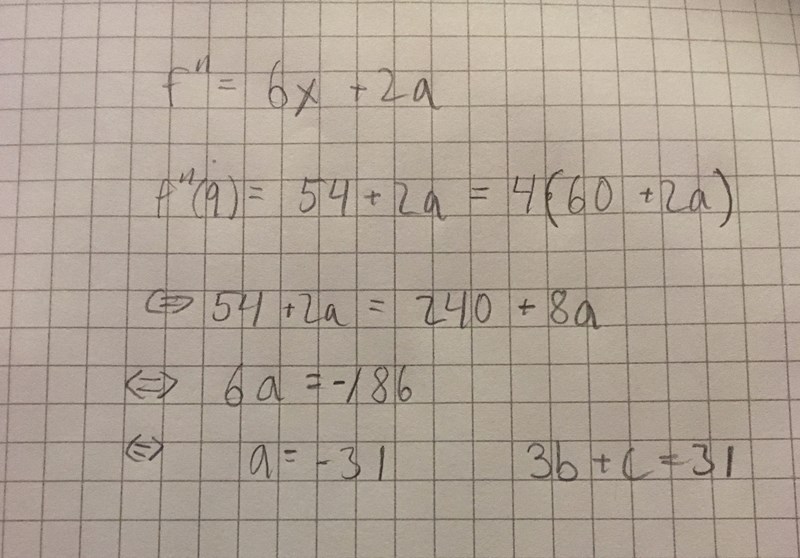 f" = 6x + 2a
f"(9) = 54 + 2a = 4(60 + 2a)
⇔ 54 + 2a = 240 + 8a
⇔ 6a = -186
⇔ a = -31 3b + c = 31